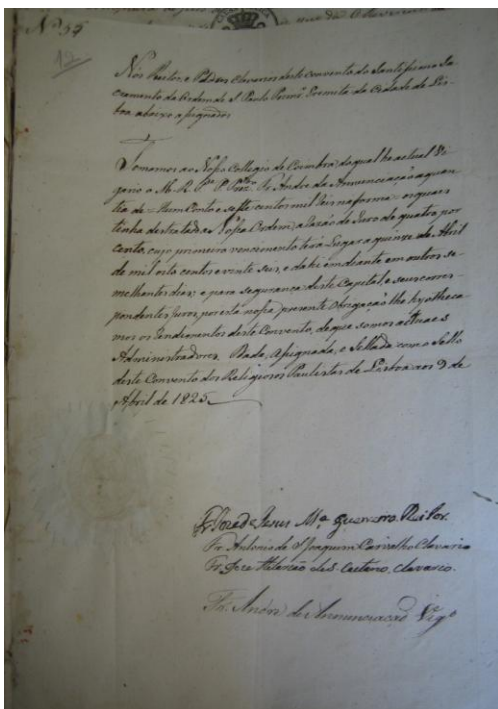 Nº 34
12
Nós Reitor, e Padres Clavarios deste convento do Santissimo Sa-
cramento da Ordem de S. Paulo Prim.º Eremita da Cidade de Lis-
boa abaixo assignados
Tomamos ao Nosso Collegio de Coimbra, do qual he actual Vi-
gario o M. R. P. Fr. Andre da Annunciação a quan-
tia de = Hum Conto e Sette centos mil Reis na forma
tinha destratado a Nossa Ordem, a razão de Juro de quatro por
cento, cujo primeiro vencimento terá Lugar a quinze de Abril
de mil oito centos e vente seis, e dahi em diante, em outros se-
melhantes dias; e para segurança deste Capital, e seus corres-
pondentes Juros, por esta nossa presente Obrigação lhe hypotheca-
mos os Rendimentos deste Convento, de que somos actuaes
Administradores. Dada, assignada, e Sellada com o Sello
deste Convento dos Religiosos Paulistas de Lisboa aos 9 de
Abril de 1825
Fr. Joze de Jesus M.ª Guerreiro Reitor.
Fr. Antonio de S. Joaquim Carvalho Clavario
Fr. Joze de S. Caetano, Clavario.
Fr. André da Annunciação Vig.º